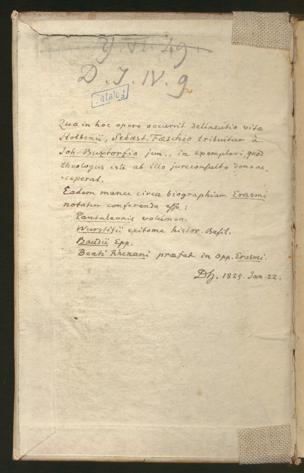 D. J. IV. 9.
Quae in hoc opere occurrit delineatio vitae
Holbenii, Sebast. Faschio tribuitur à
Joh. Buxtorfio jun., in exemplari quod
theologus iste ab illo jureconsulto dono ac-
ceperat.
Eadem manu circa biographiam Erasmi
notatur conferenda esse:
Pantaleonis volumen.
Wurstisii epitome histor. Basil.
Baudii Epp.
Beati Rhenani praefat in opp. Erasmi.
1829. Jan. 22.